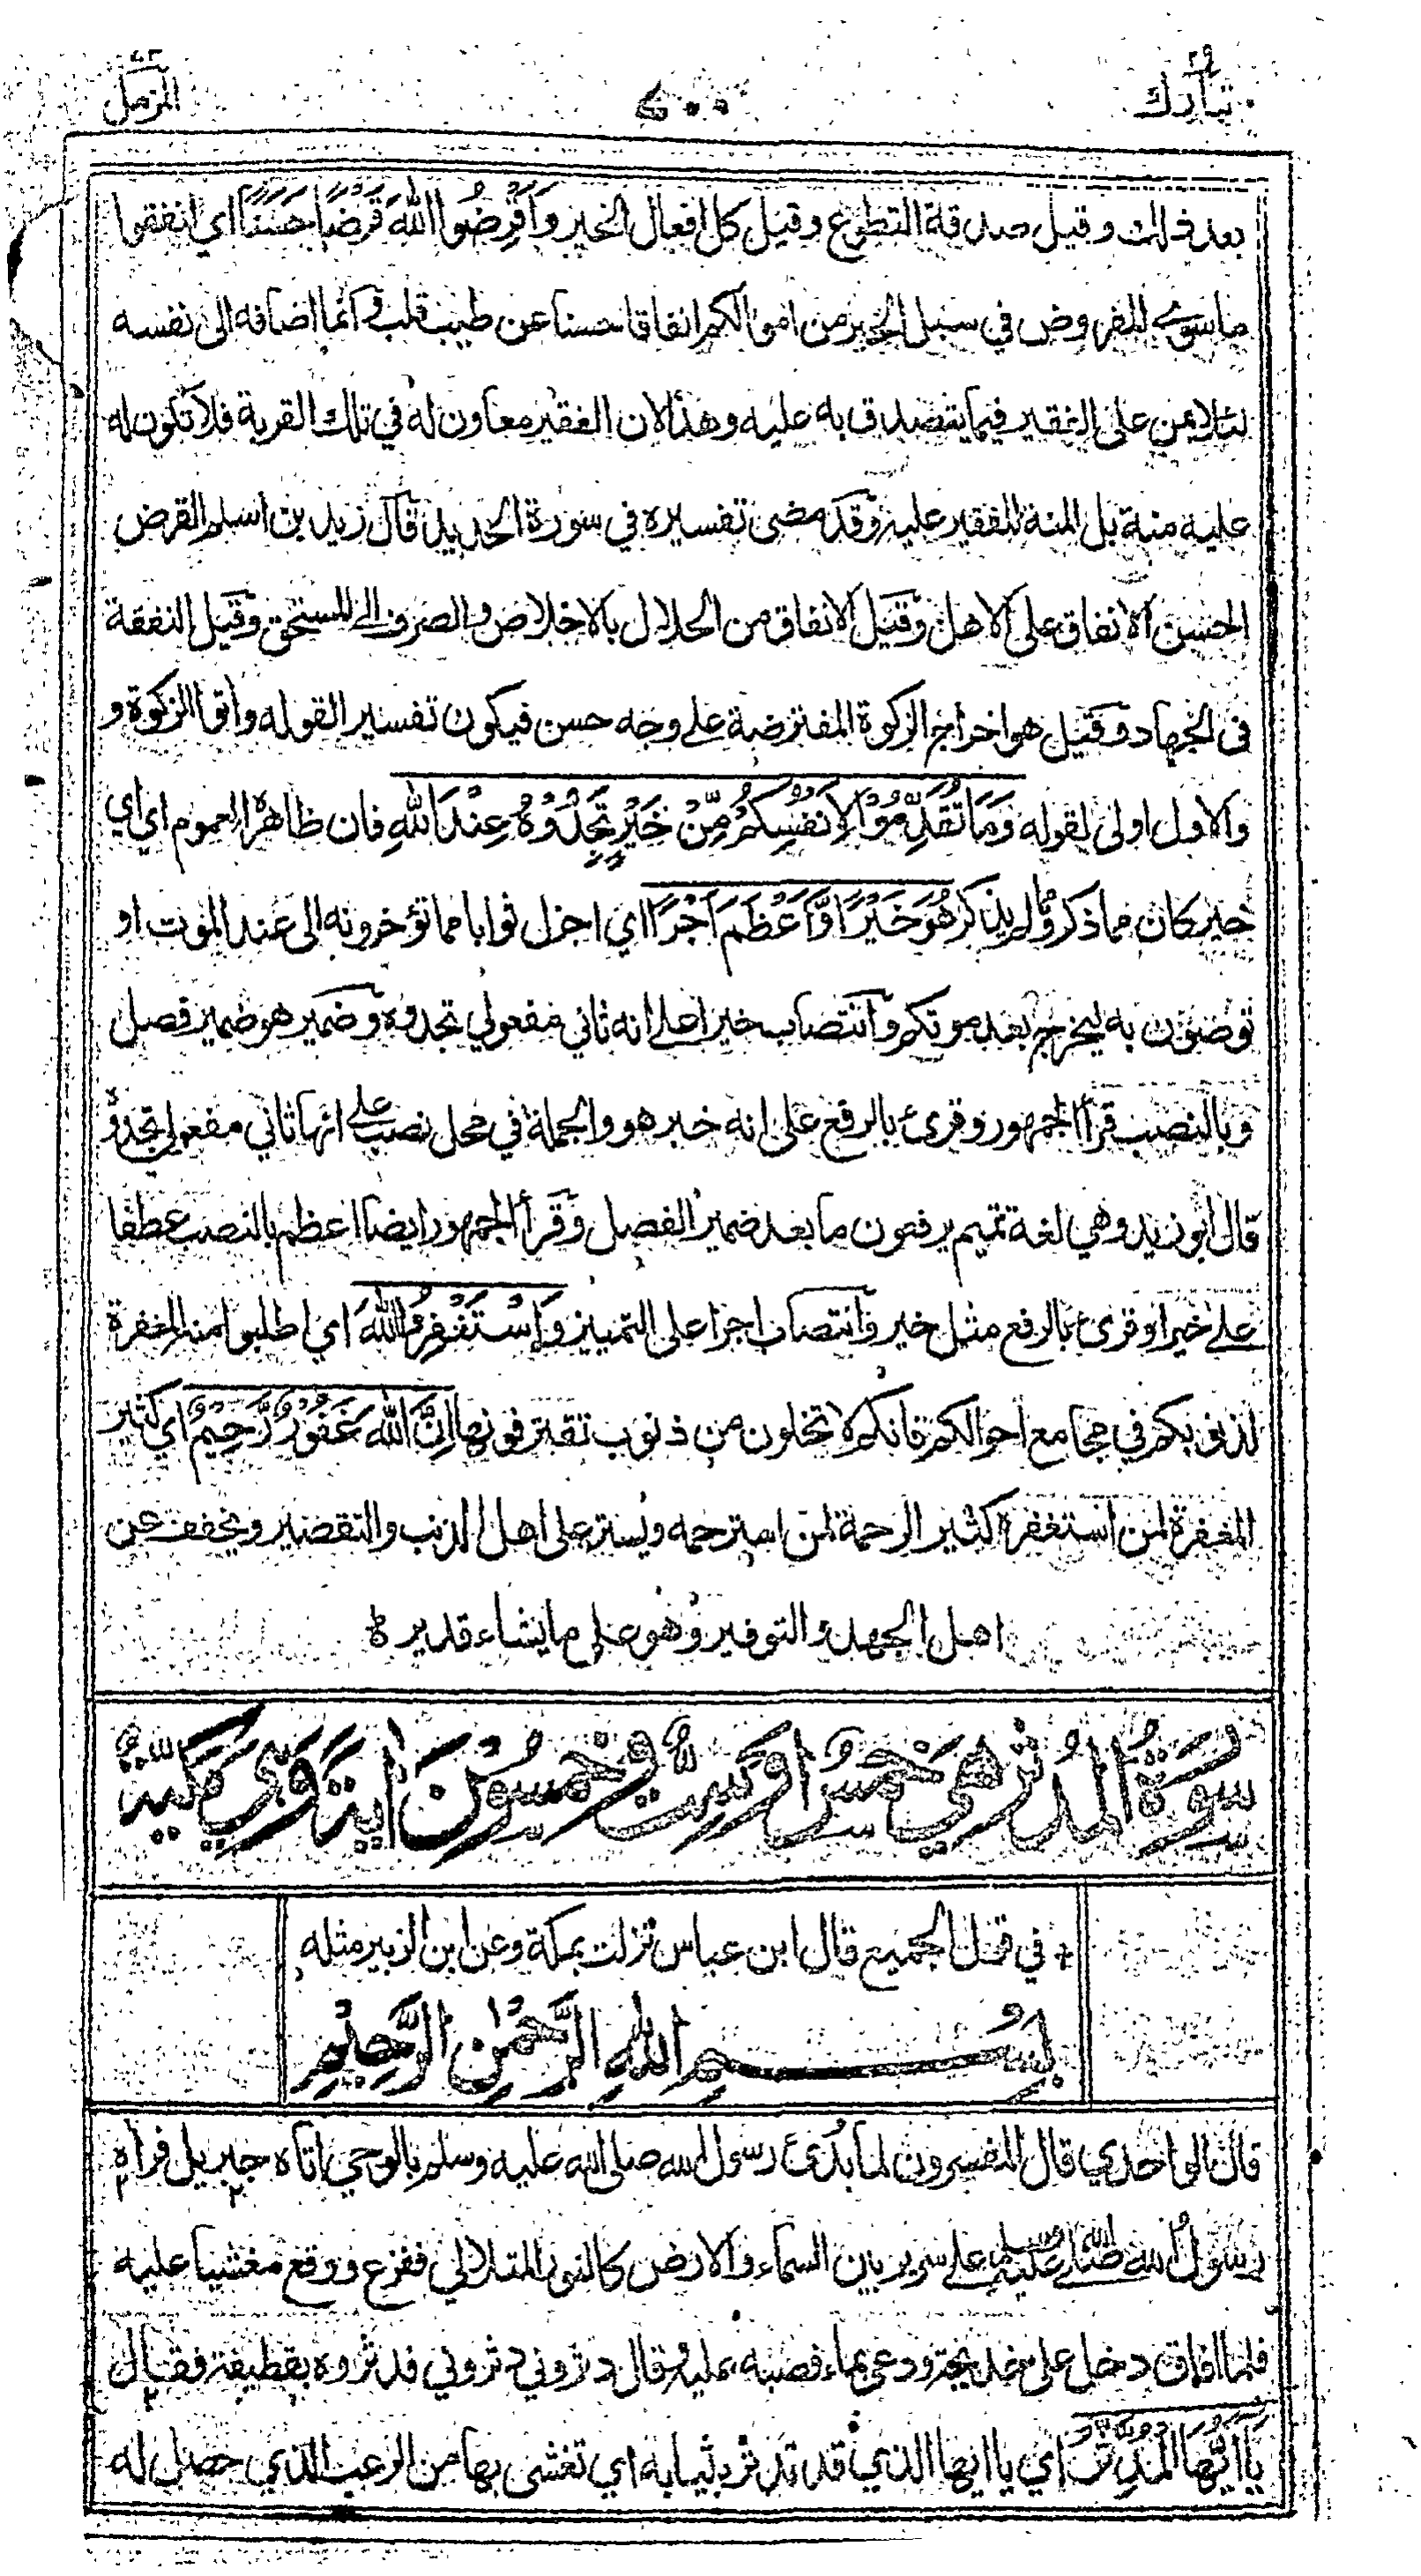 تبارك ٢٩
٤٠٠
المزمل ٧٣
بعد ذلك وقيل صدقة التطوع وقيل كل افعال الخير وَأَقْرِضُوا اللهَ قَرْضًا حَسَنًا اي انفقوا
ما سوى المفروض في سبيل الخير من اموالكم انفاقا حسنا عن طيب قلب وانما اضافه الى نفسه
لئلا يمن على الفقير فيما يتصدق به عليه وهذا لان الفقير معاون له في تلك القربة فلا تكون له
عليه منة بل المنة للفقير عليه وقد مضى تفسيره في سورة الحديد قال زيد بن اسلم القرض
الحسن الانفاق على الاهل وقيل الانفاق من الحلال بالاخلاص والصرف الى المستحق وقيل النفقة
في الجهاد وقيل هو اخراج الزكوة المفترضة على وجه حسن فيكون تفسيرا لقوله واتوا الزكوة و
والاول اولى لقوله وَمَا تُقَدِّمُوْا لِاَنْفُسِكُمْ مِّنْ خَيْرٍ تَجِدُوْهُ عِنْدَ اللهِ فان ظاهره العموم اي اي
خير كان مما ذكر ومما لم يذكر هُوَ خَيْرًا وَّاَعْظَمَ اَجْرًا اي اجزل ثوابا مما تؤخرونه الى عند الموت او
توصون به ليخرج بعد موتكم وانتصاب خيرا على انه ثاني مفعولي تجدوه وضمير هو ضمير فصل
وبالنصب قرأ الجمهور وقرئ بالرفع على انه خبر هو والجملة في محل نصب على انها ثاني مفعولي تجدوه
قال ابو زيد وهي لغة تميم يرفعون ما بعد ضمير الفصل وقرأ الجمهور ايضا اعظم بالنصب عطفا
على خيرا وقرئ بالرفع مثل خير وانتصاب اجرا على التمييز وَاسْتَغْفِرُوا اللهَ اي اطلبوا منه المغفرة
لذنوبكم في مجامع احوالكم فانكم لا تخلون من ذنوب تقترفونها اِنَّ اللهَ غَفُوْرٌ رَّحِيْمٌ اي كثير
المغفرة لمن استغفره كثير الرحمة لمن استرحمه ويستر على اهل الذنب والتقصير ويخفف عن
اهل الجهد والتوفير وهو على ما يشاء قدير ه
سورة المدثر هي خمس او ست وخمسون اية وهي مكية
في قول الجميع قال ابن عباس نزلت بمكة وعن ابن الزبير مثله
بِسْمِ اللهِ الرَّحْمٰنِ الرَّحِيْمِ
قال الواحدي قال المفسرون لما بُدئ رسول الله صلى الله عليه وسلم بالوحي اتاه جبريل فرأه
رسول الله صلى الله عليه وسلم على سرير بين السماء والارض كالنور المتلالئ ففزع ووقع مغشيا عليه
فلما افاق دخل على خديجة ودعى بماء فصبه عليه وقال دثروني دثروني فدثروه بقطيفة فقال
يٰاَيُّهَا الْمُدَّثِّرُ اي يا ايها الذي قد تدثر بثيابه اي تغشى بها من الرعب الذي حصل له